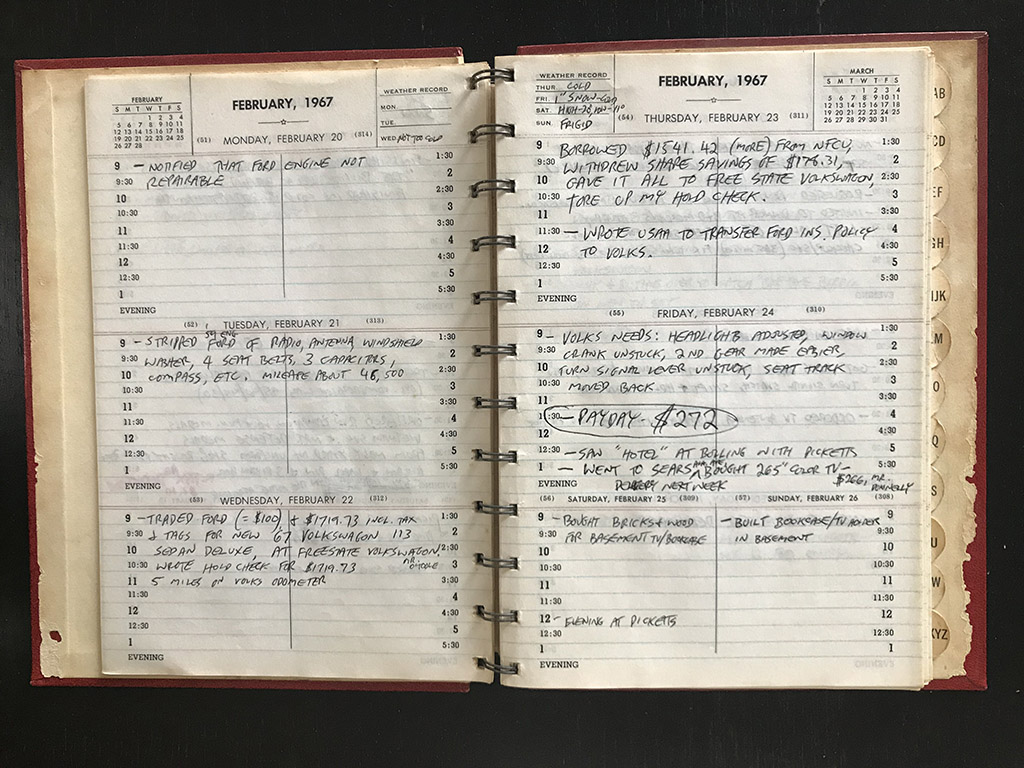 FEBRUARY
S M T W T F S
1 2 3 4
5 6 7 8 9 10 11
12 13 14 15 16 17 18
19 20 21 22 23 24 25
26 27 28
FEBRUARY, 1967
WEATHER RECORD
MON.
TUE.
WED. NOT TOO COLD
(51) MONDAY, FEBRUARY 20 (314)
9 – NOTIFIED THAT FORD ENGINE NOT 1:30
9:30 REPAIRABLE 2
10 2:30
10:30 3
11 3:30
11:30 4
12 4:30
12:30 5
1 5:30
EVENING
(52) TUESDAY, FEBRUARY 21 (313)
9 – STRIPPED FORD OF RADIO, ANTENNA, WINDSHIELD 1:30
9:30 WASHER, 4 SEAT BELTS, 3 CAPACITORS, 2
10 COMPASS, ETC. MILEAGE ABOUT 46,500 2:30
10:30 3
11 3:30
11:30 4
12 4:30
12:30 5
1 5:30
EVENING
(53) WEDNESDAY, FEBRUARY 22 (312)
9 – TRADED FORD (= $100) & $1719.73 INCL. TAX 1:30
9:30 & TAGS FOR NEW '67 VOLKSWAGON 113 2
10 SEDAN DELUXE, AT FREESTATE VOLKSWAGON, 2:30
10:30 WROTE HOLD CHECK FOR $1719.73 MR. O'TOOLE 3
11 5 MILES ON VOLKS ODOMETER 3:30
11:30 4
12 4:30
12:30 5
1 5:30
EVENING
WEATHER RECORD
THUR. COLD
FRI. 1" SNOW-
SAT.
SUN. FRIGID
FEBRUARY, 1967
MARCH
S M T W T F S
1 2 3 4
5 6 7 8 9 10 11
12 13 14 15 16 17 18
19 20 21 22 23 24 25
26 27 28 29 30 31
(54) THURSDAY, FEBRUARY 23 (311)
9 BORROWED $1541.42 (MORE) FROM NFCU, 1:30
9:30 WITHDREW SHARE SAVINGS OF $178.31, 2
10 GAVE IT ALL TO FREE STATE VOLKSWAGON, 2:30
10:30 TORE UP MY HOLD CHECK. 3
11 3:30
11:30 – WROTE USAA TO TRANSFER FORD INS. POLICY 4
12 TO VOLKS. 4:30
12:30 5
1 5:30
EVENING
(55) FRIDAY, FEBRUARY 24 (310)
9 – VOLKS NEEDS: HEADLIGHTS ADJUSTED, WINDOW 1:30
9:30 CRANK UNSTUCK, 2ND GEAR MADE EASIER, 2
10 TURN SIGNAL LEVER UNSTUCK, SEAT TRACK 2:30
10:30 MOVED BACK 3
11 3:30
11:30 – PAYDAY – $272 4
12 4:30
12:30 – SAW "HOTEL" AT BOLLING WITH PICKETTS 5
1 – WENT TO SEARS BOUGHT 265" COLOR TV – 5:30
EVENING DELIVERY NEXT WEEK $266, MR. DONNELLY
(56) SATURDAY, FEBRUARY 25 (309)
9 – BOUGHT BRICKS & WOOD
9:30 FOR BASEMENT TV/BOOKCASE
10
10:30
11
11:30
12 – EVENING AT PICKETTS
12:30
1
EVENING
(57) SUNDAY, FEBRUARY 26 (308)
– BUILT BOOKCASE/TV HOLDER 9
IN BASEMENT 9:30
10
10:30
11
11:30
12
12:30
1
EVENING
AB
CD
EF
GH
IJK
LM
O
Q
S
U
W
XYZ